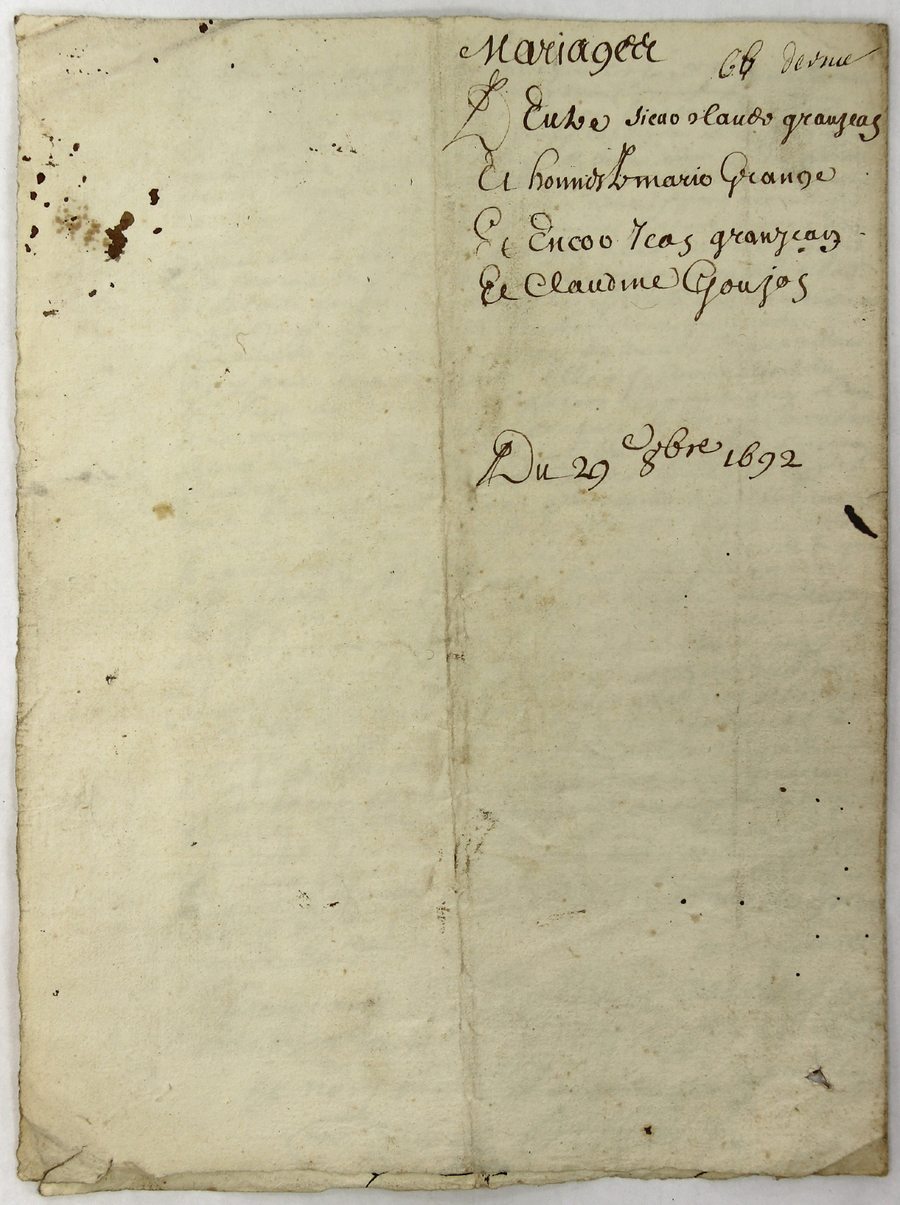 Mariages
Entre sieur claude granjean
Et honneste marie Grange
Et Encor Jean granjean
Et Claudine Goujon
Du 29e 8bre 1692